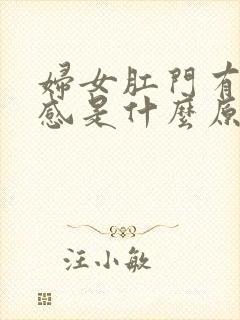 婦女肛門有
感是什麼原
汪小敏